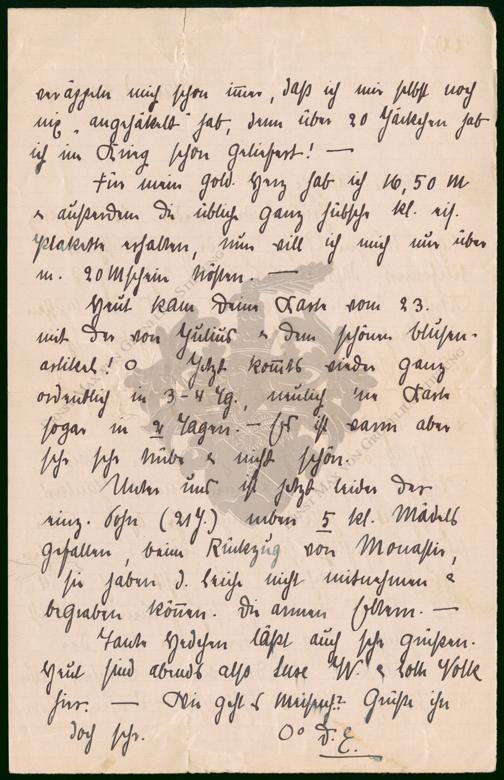 veräppeln mich schon im̅er, daß ich mir selbst noch
nix "angehäkelt" hab, denn über 20 Jäckchen hab
ich im Krieg schon geliefert! —
Für mein gold. Herz hab ich 16,50 M
& außerdem die übliche ganz hübsche kl. eis.
Plakette erhalten, nun will ich mich nur über
m. 20 Mschein trösten. —
Heut kam Deine Karte vom 23.
mit der von Julius & dem schönen Blusen-
artikel! O Jetzt kom̅ts wieder ganz
ordentlich in 3-4 Tg., neulich 'ne Karte
sogar in 2 Tagen. — Es ist warm aber
sehr sehr trübe & nicht schön.
Unter uns ist jetzt leider der
einz. Sohn (21 J.) neben 5 kl. Mädels
gefallen, beim Rückzug von Monastir,
sie haben d. Leiche nicht mitnehmen &
begraben kön̅en. Die armen Eltern. —
Tante Hedchen läßt auch sehr grüßen.
Heut sind abends alle Luse W. & Lotte Nolte
hier. — Wie geht es Grüße ihr
doch sehr. Oo D. E.
ERNST MAX VON GRUNELIUS-STIFTUNG